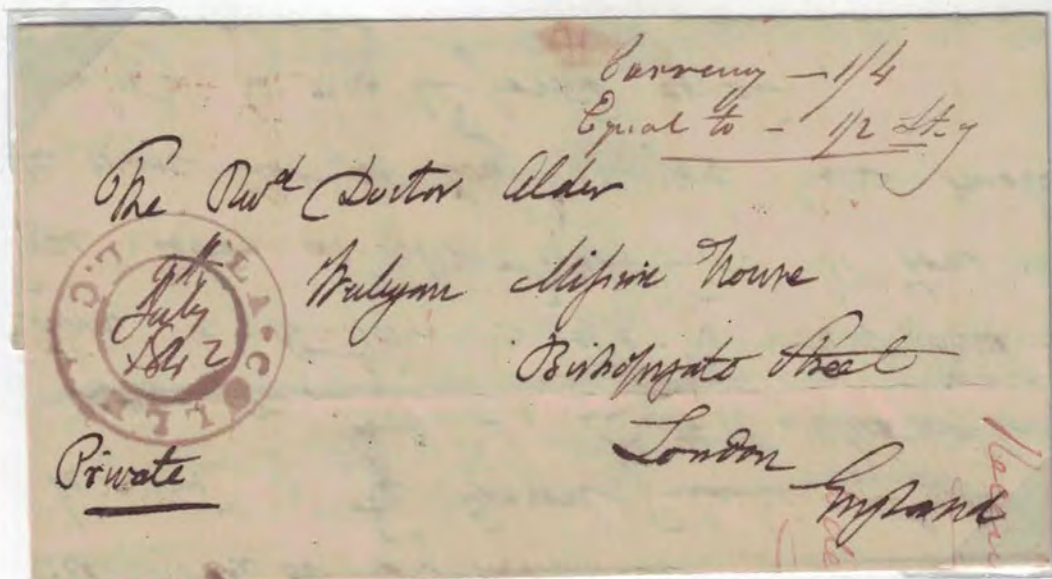 Currency – 1/4
Equal to – 1/2 Stg
The Revd Doctor Alder
Wesleyan Mission House
Bishopsgate Street
London
England
9th
July
1842
Private